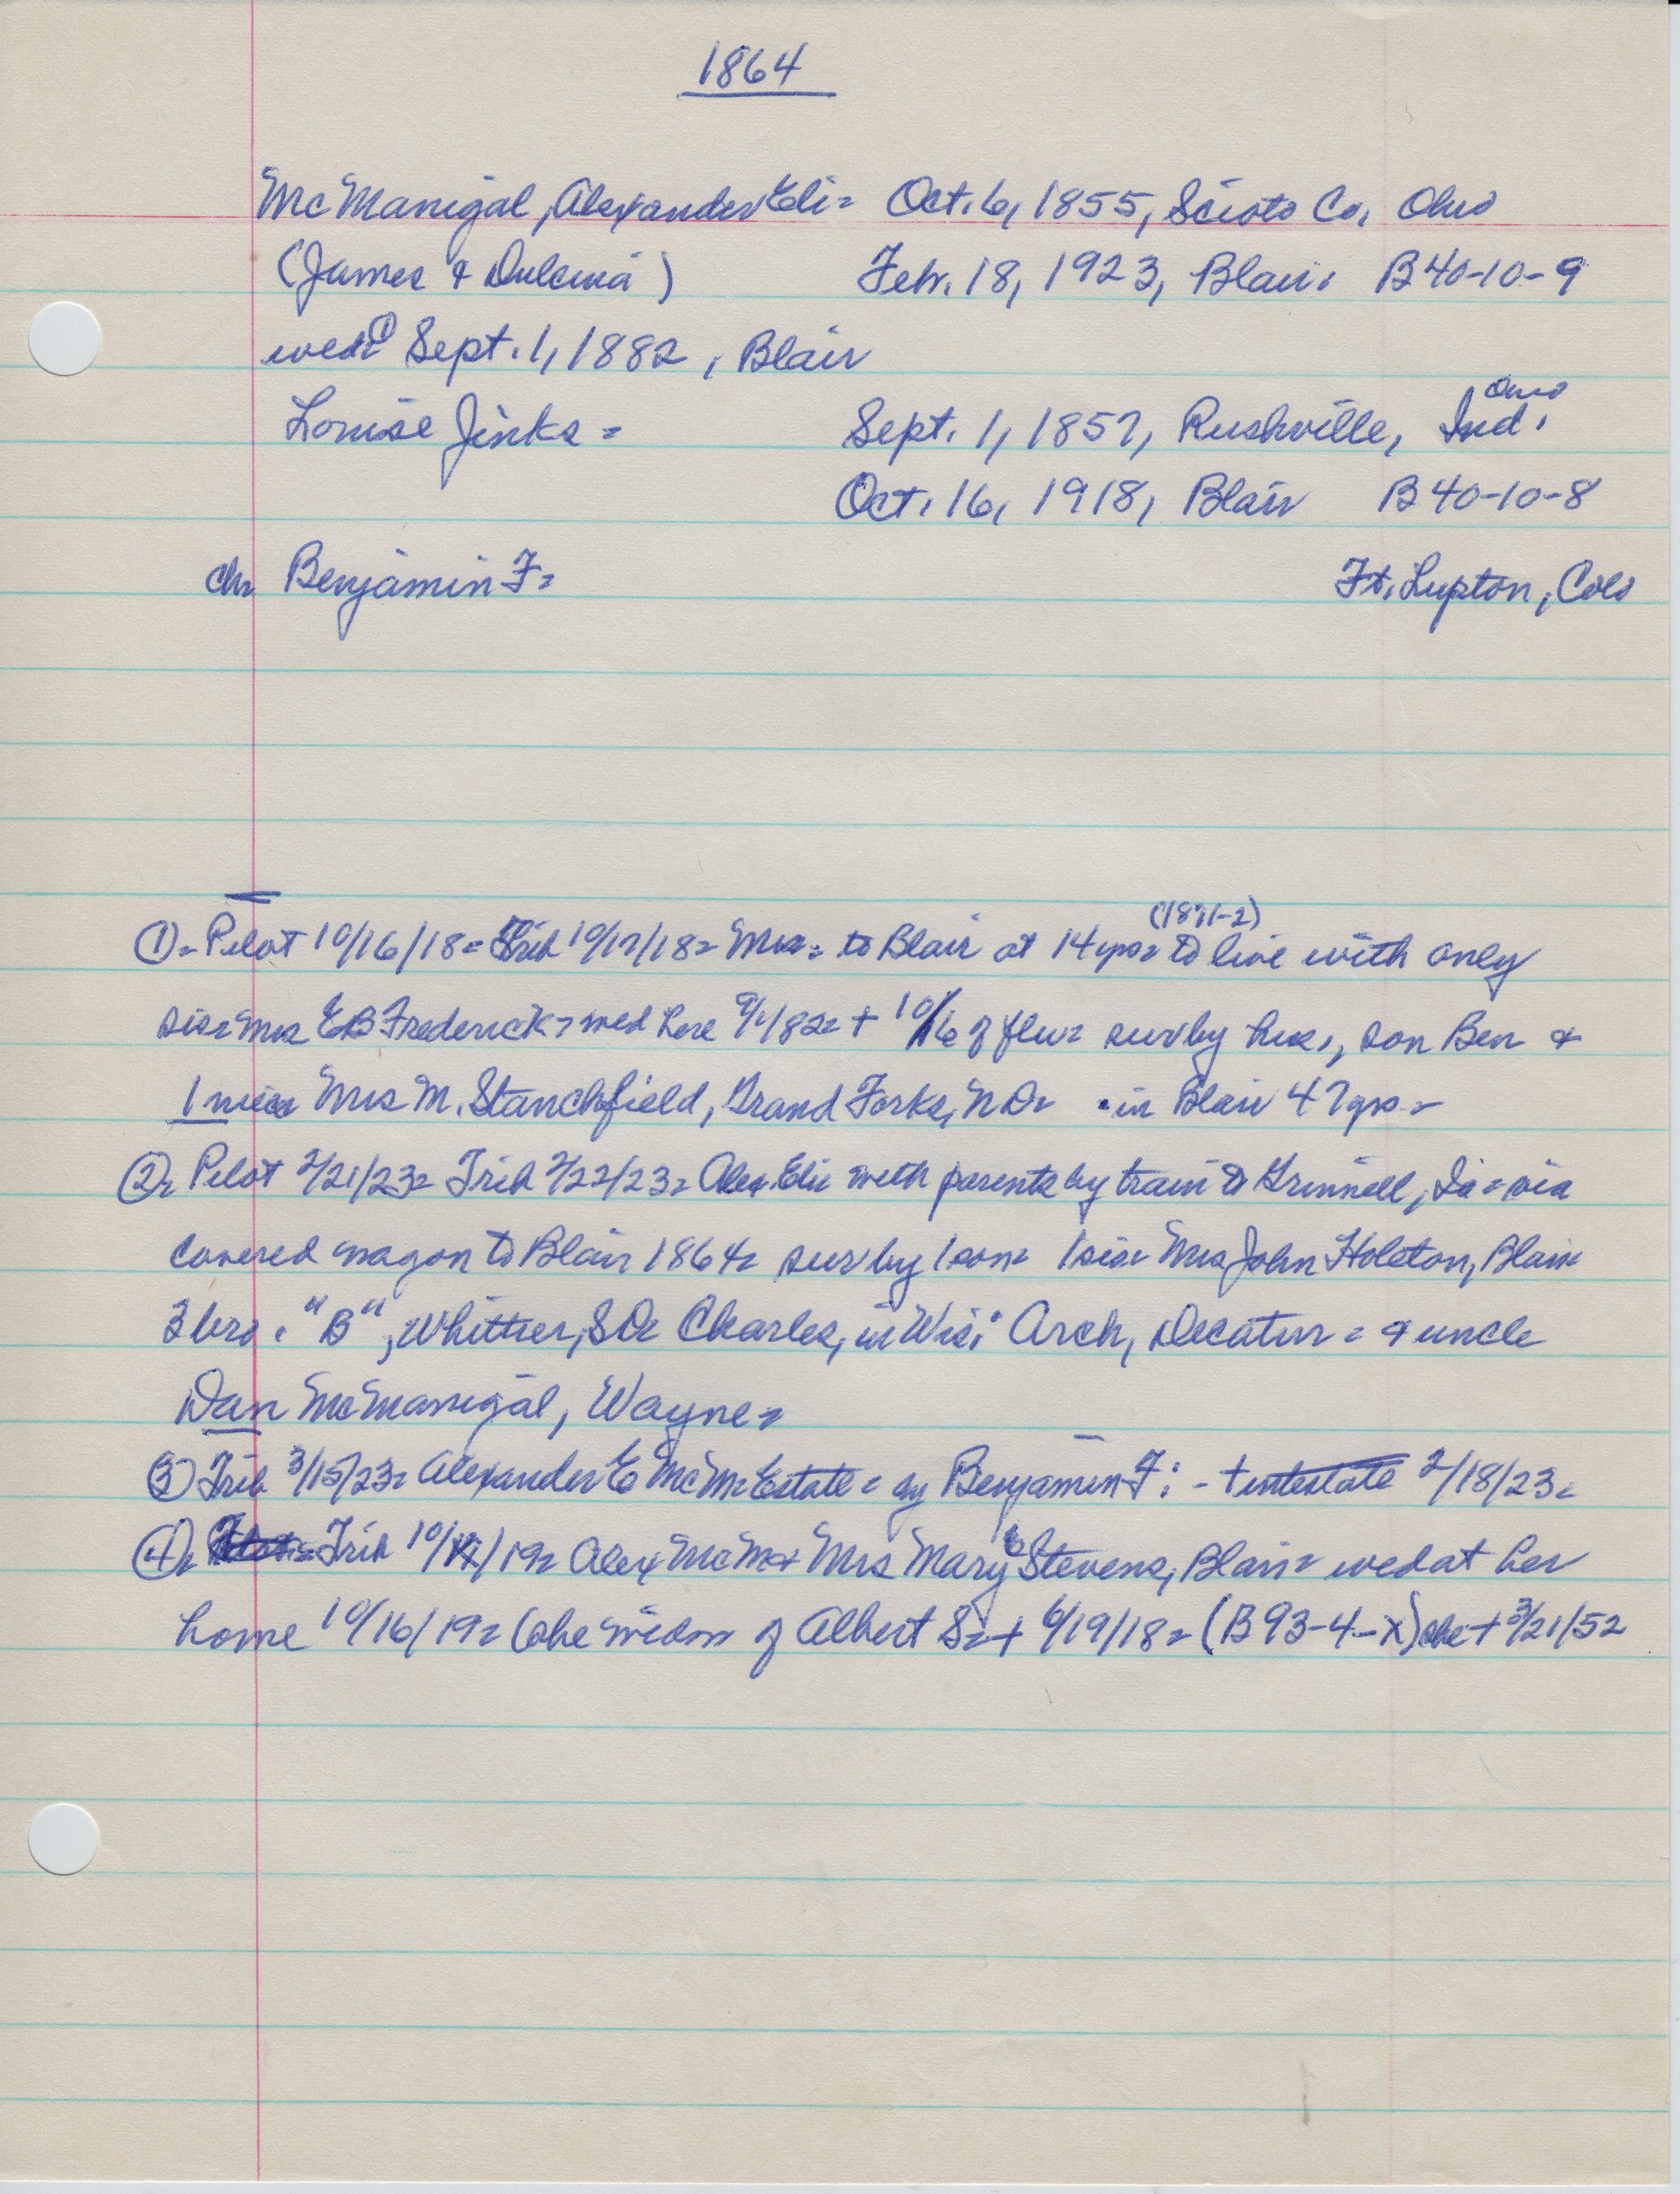 1864
McManigal, Alexander Eli = Oct. 6, 1855, Scioto Co, Ohio
(James & Dulcina) Feb. 18, 1923, Blair, B40-10-9
wed = ① Sept. 1, 1882, Blair
Ohio
Louise Jinks = Sept. 1, 1857, Rushville, Ind.
Oct. 16, 1918, Blair B40-10-8
ch Benjamin F = Ft. Lupton, Colo
(1871-2)
① = Pilot 10/16/18 = Trib 10/17/18 = Mrs = to Blair at 14 yrs = to live with only
sis = Mrs EB Frederick = wed here 9/1/82 = + 10/16 of flu = sur by hus, son Ben &
1 niece Mrs M. Stanchfield, Grand Forks, ND = in Blair 47 yrs =
② = Pilot 2/21/23 = Trib 2/22/23 = Alex Eli = with parents by train to Grinnell, Ia = via
covered wagon to Blair 1864 = sur by 1 son = 1 sis = Mrs John Holston, Blair
3 bro. "B", Whittier, SD = Charles, in Wis; Arch, Decatur = & uncle
Dan McManigal, Wayne =
③ Trib 3/15/23 = Alexander E McM = Estate = by Benjamin F: - + intestate 2/18/23 =
④ = Trib 10/ /19 = Alex McM & Mrs Mary E Stevens, Blair = wed at her
home 10/16/19 = (she widow of Albert S = + 6/19/18 = (B93-4-X) she + 3/21/52